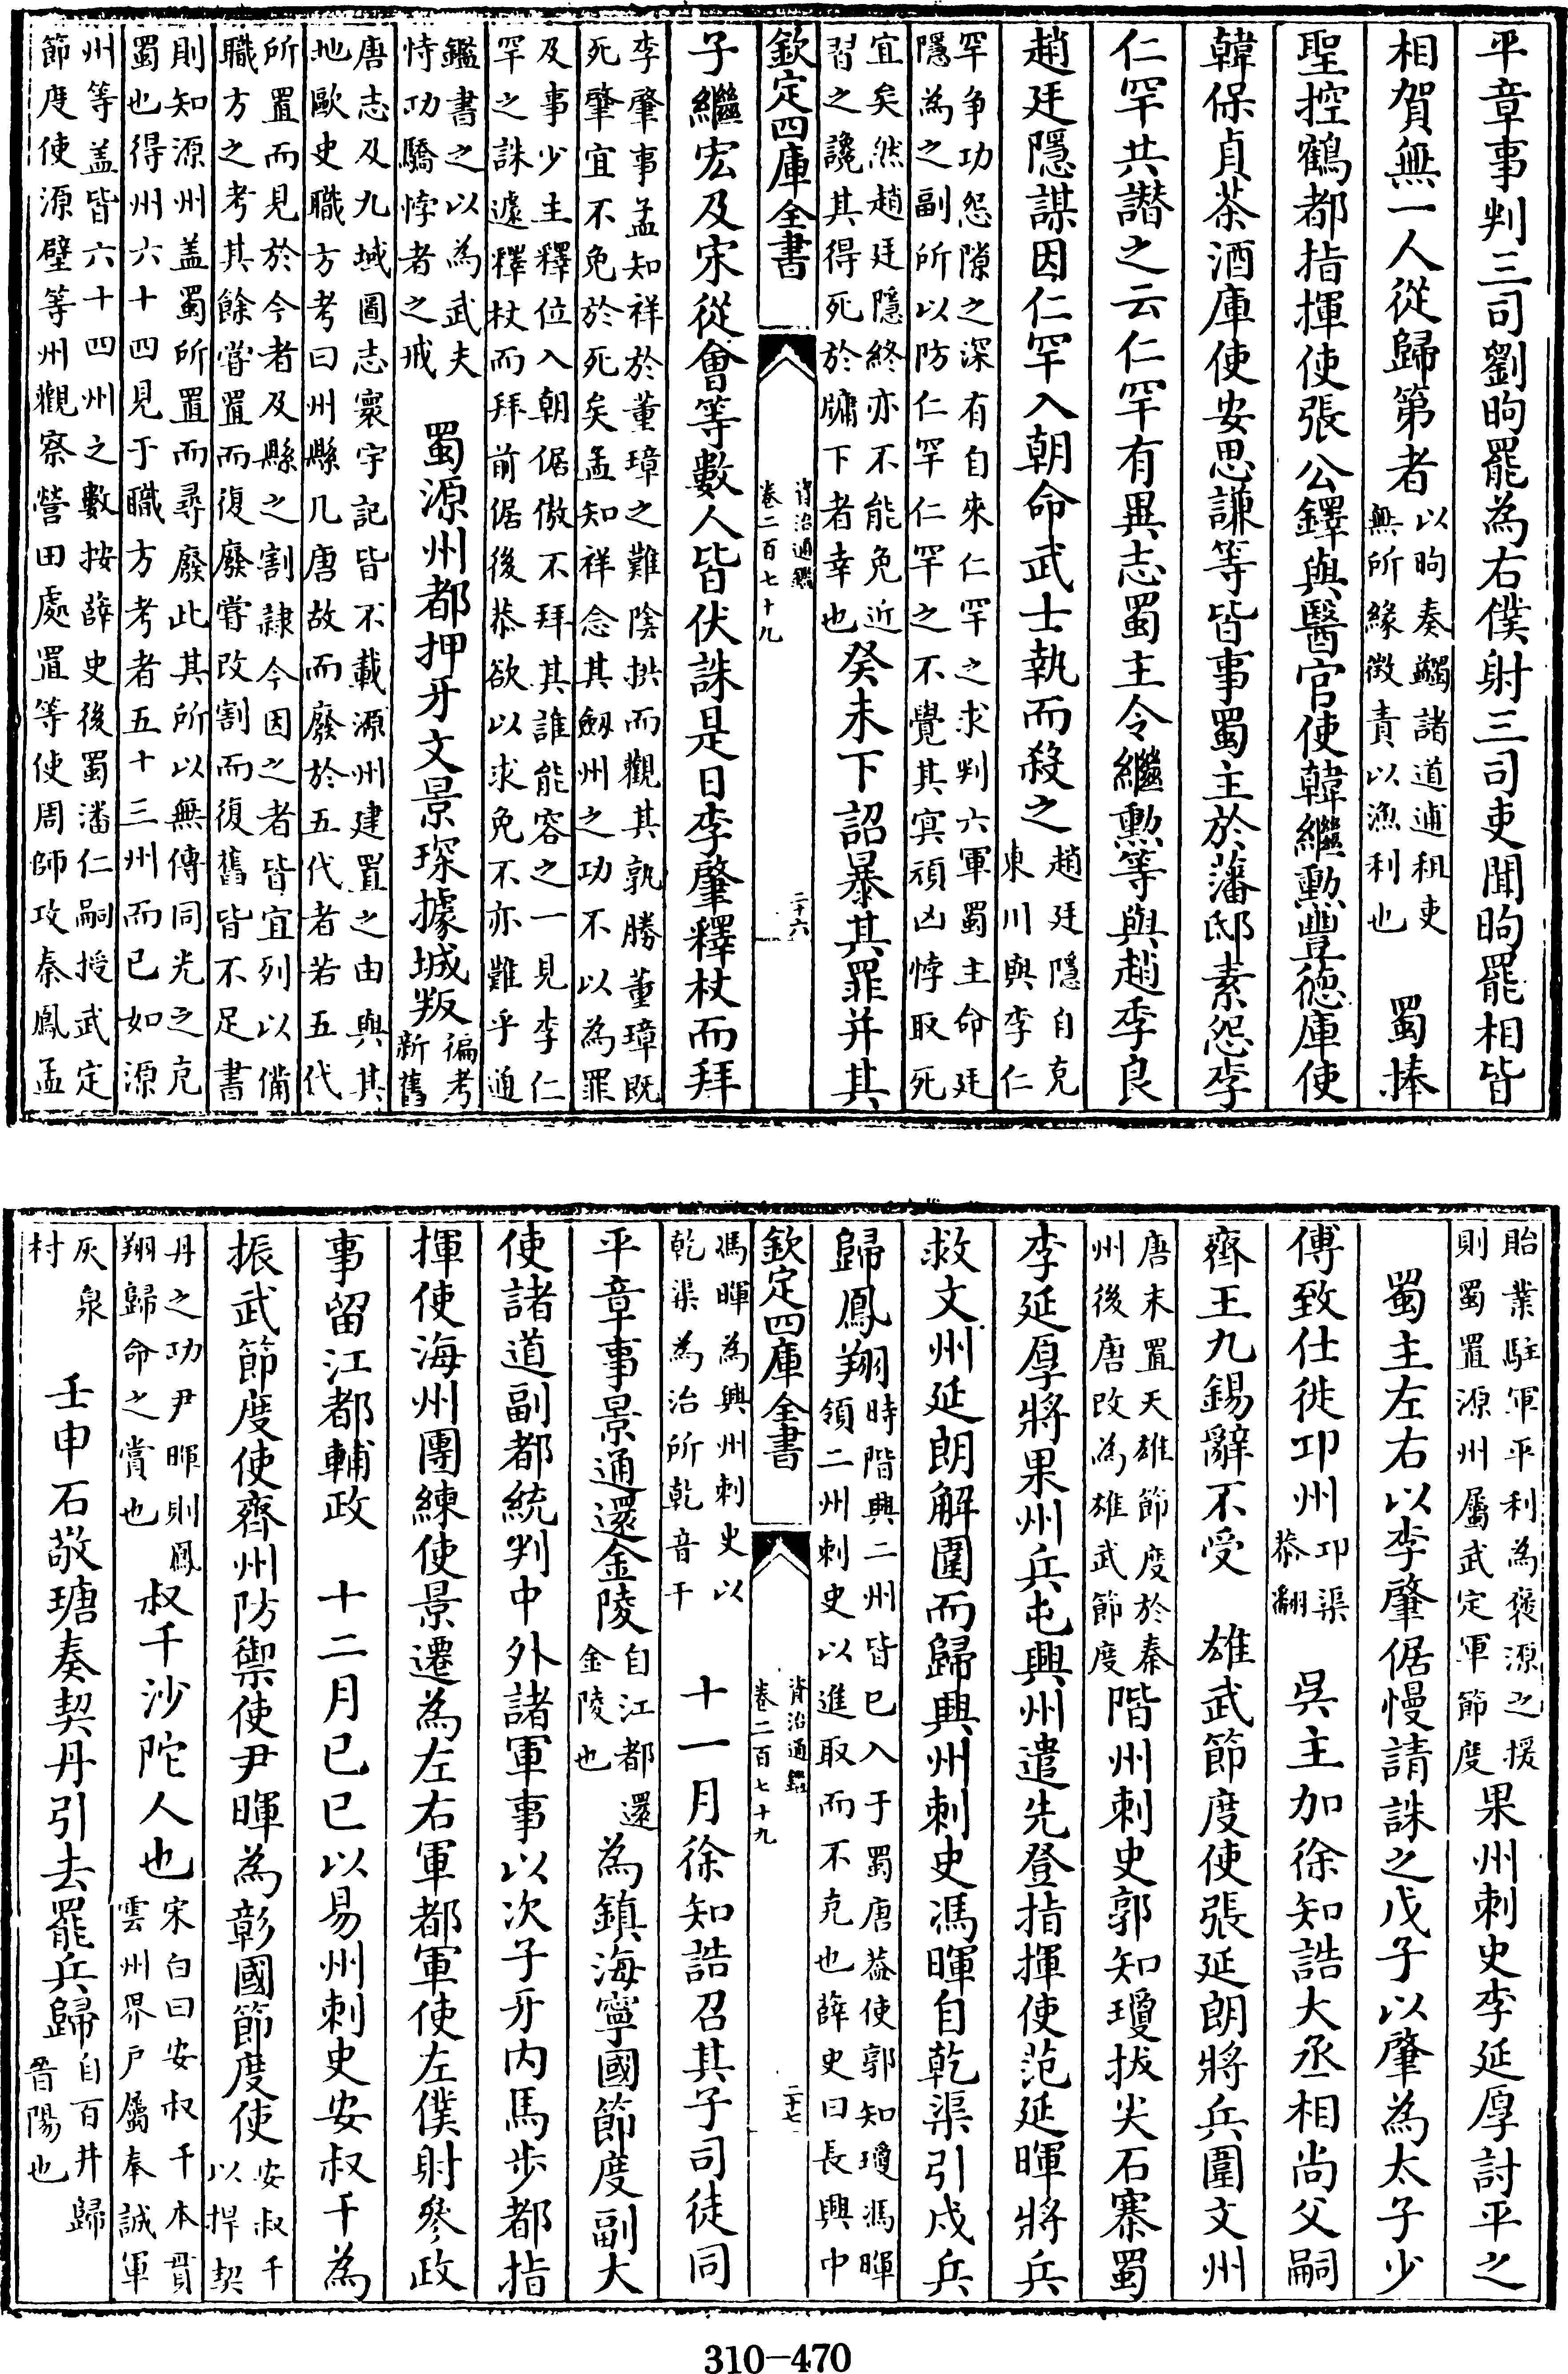 平章事判三司劉昫罷為右僕射三司吏聞昫罷相皆
相賀無一人從歸第者以昫奏蠲諸道逋租吏無所緣徴責以漁利也　蜀捧
聖控鶴都指揮使張公鐸與醫官使韓繼勲豐徳庫使
韓保貞茶酒庫使安思謙等皆事蜀主於藩邸素怨李
仁罕共譖之云仁罕有異志蜀主令繼勲等與趙季良
趙廷隱謀因仁罕入朝命武士執而殺之趙廷隱自克東川與李仁
罕争功怨隙之深有自來仁罕之求判六軍蜀主命廷隱為之副所以防仁罕仁罕之不覺其㝠頑凶悖取死
宜矣然趙廷隱終亦不能免近習之讒其得死於牖下者幸也癸未下詔暴其罪并其
欽定四庫全書
資治通鑑
卷二百七十九
二十六
子繼宏及宋從會等數人皆伏誅是日李肇釋杖而拜
李肇事孟知祥於董璋之難隂拱而觀其孰勝董璋既死肇宜不免於死矣孟知祥念其劒州之功不以為罪
及事少主釋位入朝倨傲不拜其誰能容之一見李仁罕之誅遽釋杖而拜前倨後恭欲以求免不亦難乎通
鑑書之以為武夫恃功驕悖者之戒　蜀源州都押牙文景琛據城叛徧考新舊
唐志及九域圖志寰宇記皆不載源州建置之由與其地歐史職方考曰州縣凡唐故而廢於五代者若五代
所置而見於今者及縣之割隷今因之者皆宜列以備職方之考其餘嘗置而復廢嘗改割而復舊皆不足書
則知源州盖蜀所置而尋廢此其所以無傳同光之克蜀也得州六十四見于職方考者五十三州而已如源
州等盖皆六十四州之數按薛史後蜀潘仁嗣授武定節度使源壁等州觀察營田處置等使周師攻秦鳳孟
貽業駐軍平利為褒源之援則蜀置源州屬武定軍節度果州刺史李延厚討平之
蜀主左右以李肇倨慢請誅之戊子以肇為太子少
傅致仕徙卭州卭渠恭翻　吳主加徐知誥大丞相尚父嗣
齊王九錫辭不受　雄武節度使張延朗將兵圍文州
唐末置天雄節度於秦州後唐改為雄武節度階州刺史郭知瓊拔尖石寨蜀
李延厚將果州兵屯興州遣先登指揮使范延暉將兵
救文州延朗解圍而歸興州刺史馮暉自乾渠引戍兵
歸鳳翔時階興二州皆已入于蜀唐葢使郭知瓊馮暉領二州刺史以進取而不克也薛史曰長興中
欽定四庫全書
資治通鑑
卷二百七十九
二十七
馮暉為興州刺史以乾渠為治所乾音干　十一月徐知誥召其子司徒同
平章事景通還金陵自江都還金陵也為鎮海寧國節度副大
使諸道副都統判中外諸軍事以次子牙内馬步都指
揮使海州團練使景遷為左右軍都軍使左僕射參政
事留江都輔政　十二月已巳以易州刺史安叔千為
振武節度使齊州防禦使尹暉為彰國節度使安叔千以捍契
丹之功尹暉則鳳翔歸命之賞也叔千沙陀人也宋白曰安叔千本貫雲州界戶屬奉誠軍
灰泉村　壬申石敬瑭奏契丹引去罷兵歸自百井歸晉陽也
310-470